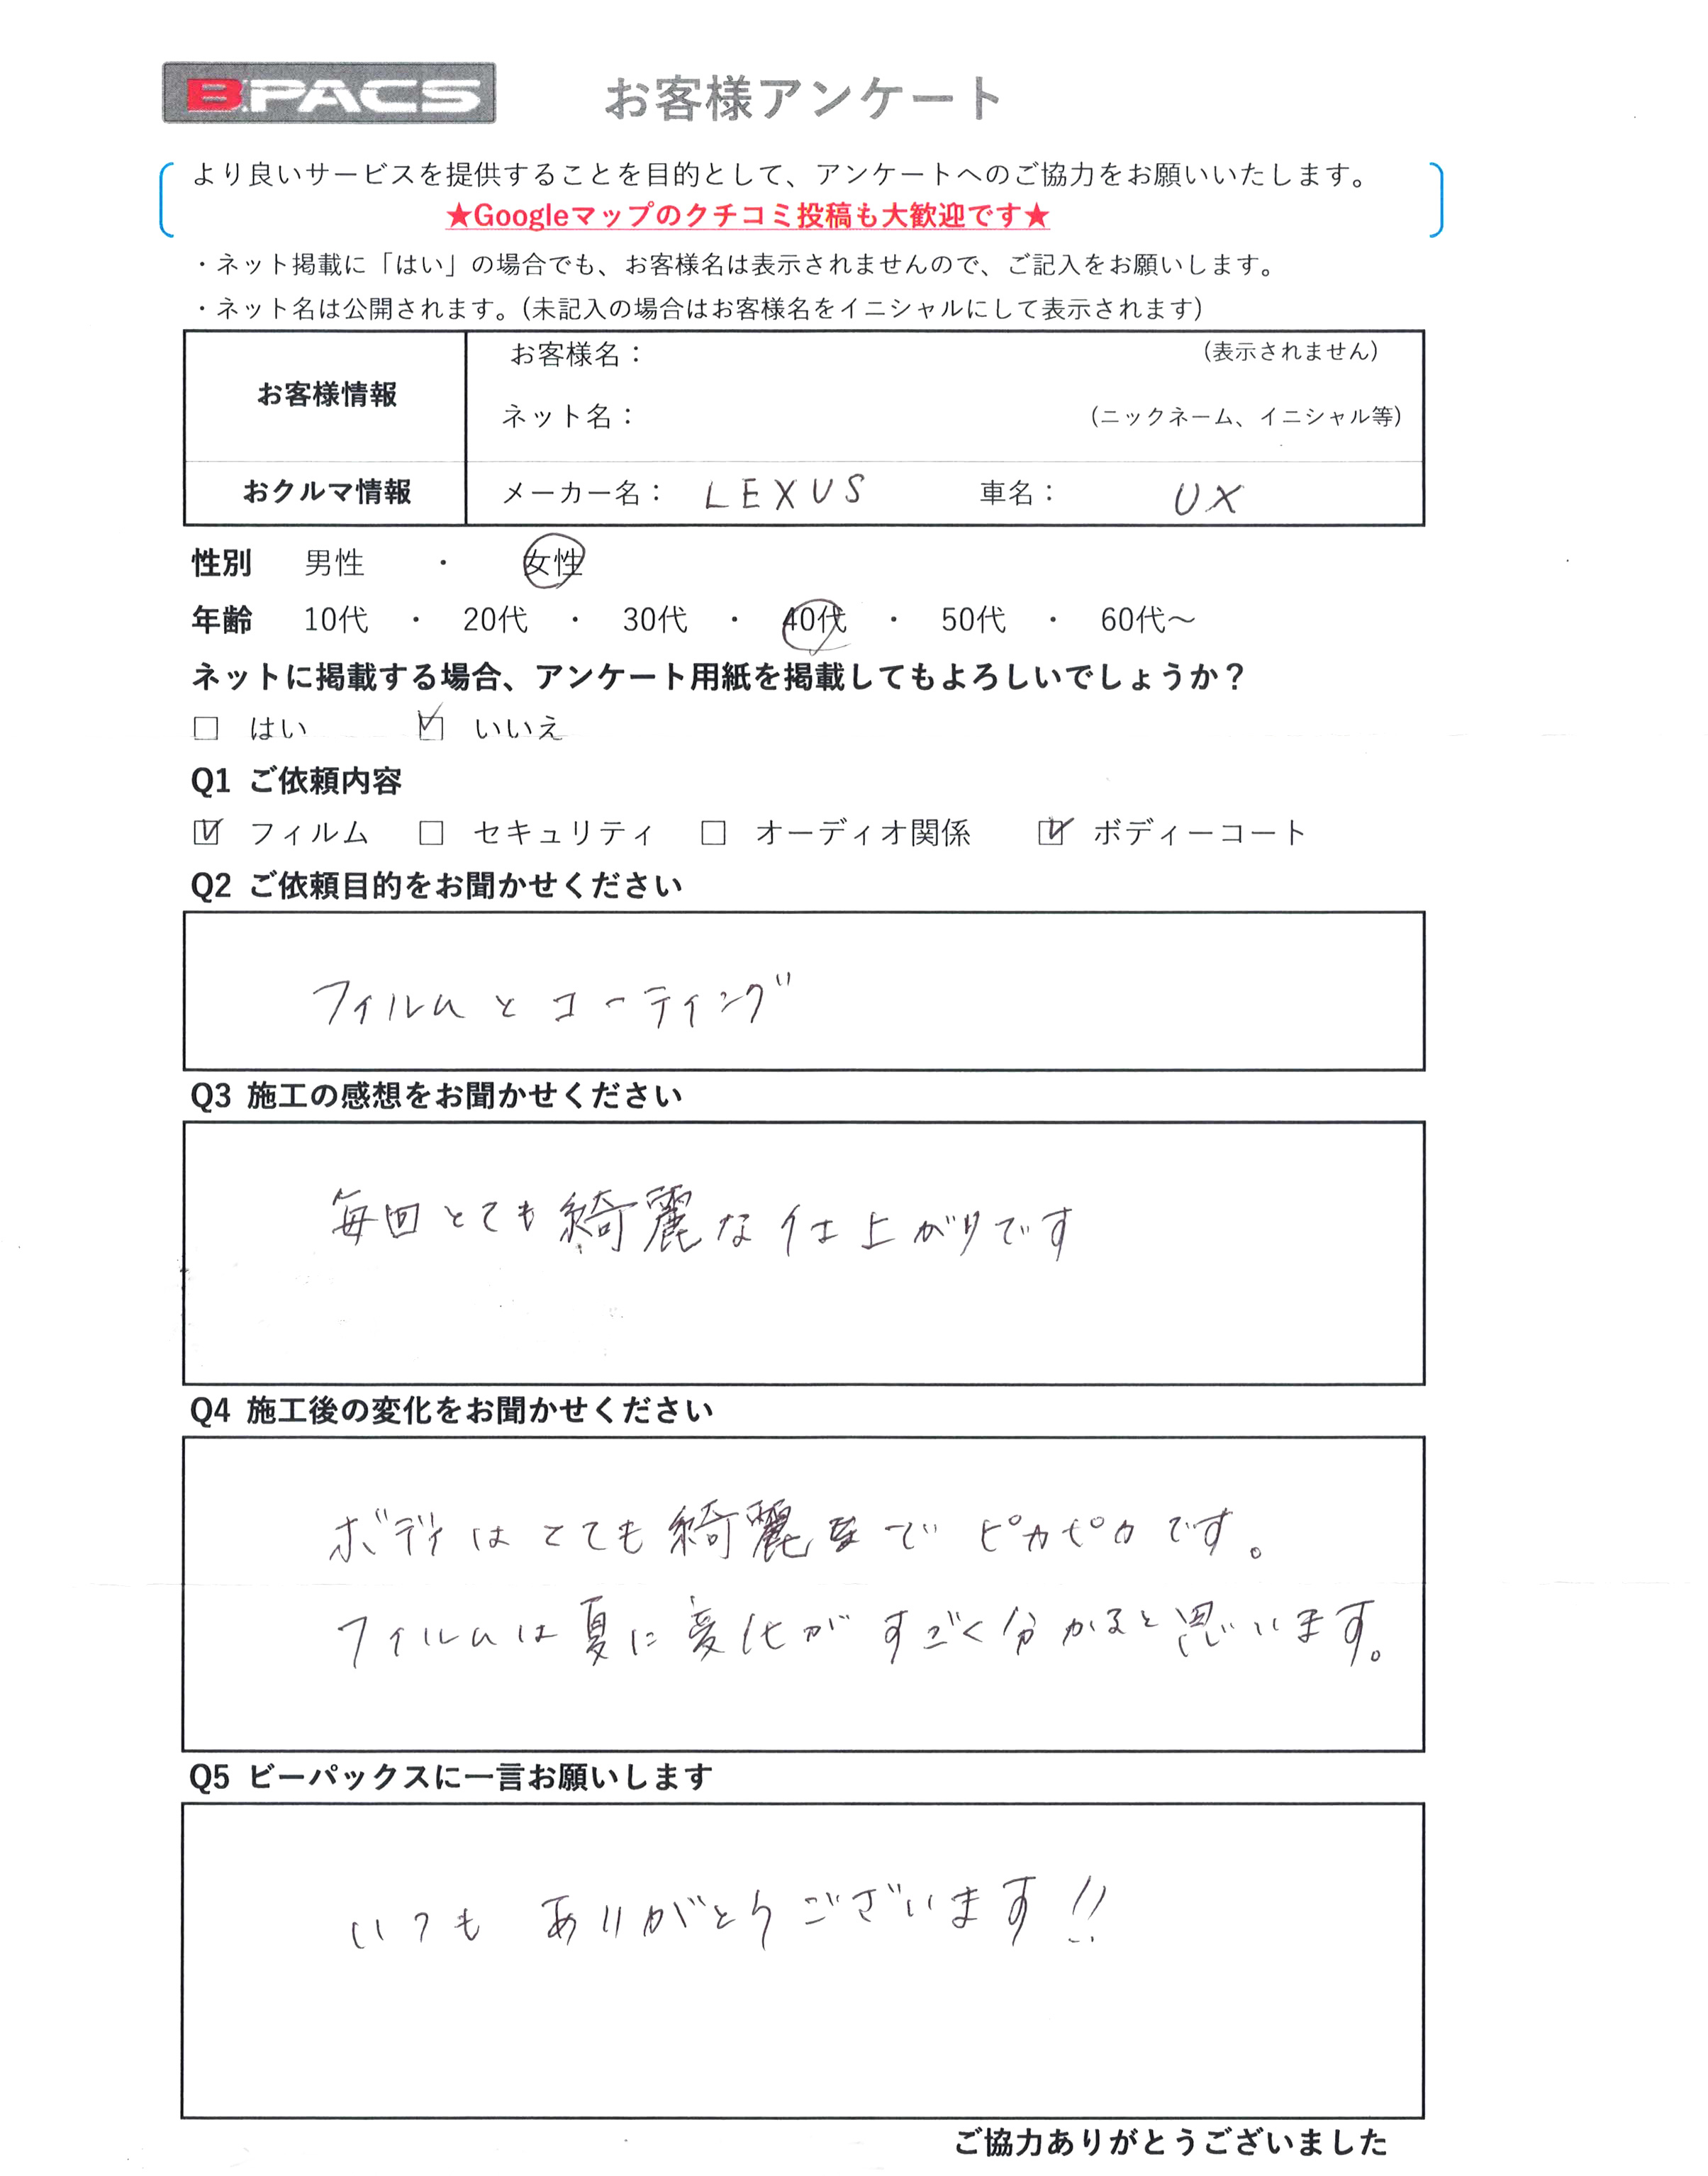 B.PACS お客様アンケート
より良いサービスを提供することを目的として、アンケートへのご協力をお願いいたします。
★Googleマップのクチコミ投稿も大歓迎です★
・ネット掲載に「はい」の場合でも、お客様名は表示されませんので、ご記入をお願いします。
・ネット名は公開されます。(未記入の場合はお客様名をイニシャルにして表示されます)
お客様情報 お客様名： (表示されません)
ネット名： (ニックネーム、イニシャル等)
おクルマ情報 メーカー名： LEXUS 車名： UX
性別 男性 ・ 女性
年齢 10代 ・ 20代 ・ 30代 ・ 40代 ・ 50代 ・ 60代～
ネットに掲載する場合、アンケート用紙を掲載してもよろしいでしょうか？
□ はい ☑ いいえ
Q1 ご依頼内容
☑ フィルム □ セキュリティ □ オーディオ関係 ☑ ボディーコート
Q2 ご依頼目的をお聞かせください
フィルムとコーティング
Q3 施工の感想をお聞かせください
毎回とても綺麗な仕上がりです
Q4 施工後の変化をお聞かせください
ボディはとても綺麗でピカピカです。
フィルムは夏に変化がすごく分かると思います。
Q5 ビーパックスに一言お願いします
いつもありがとうございます!!
ご協力ありがとうございました